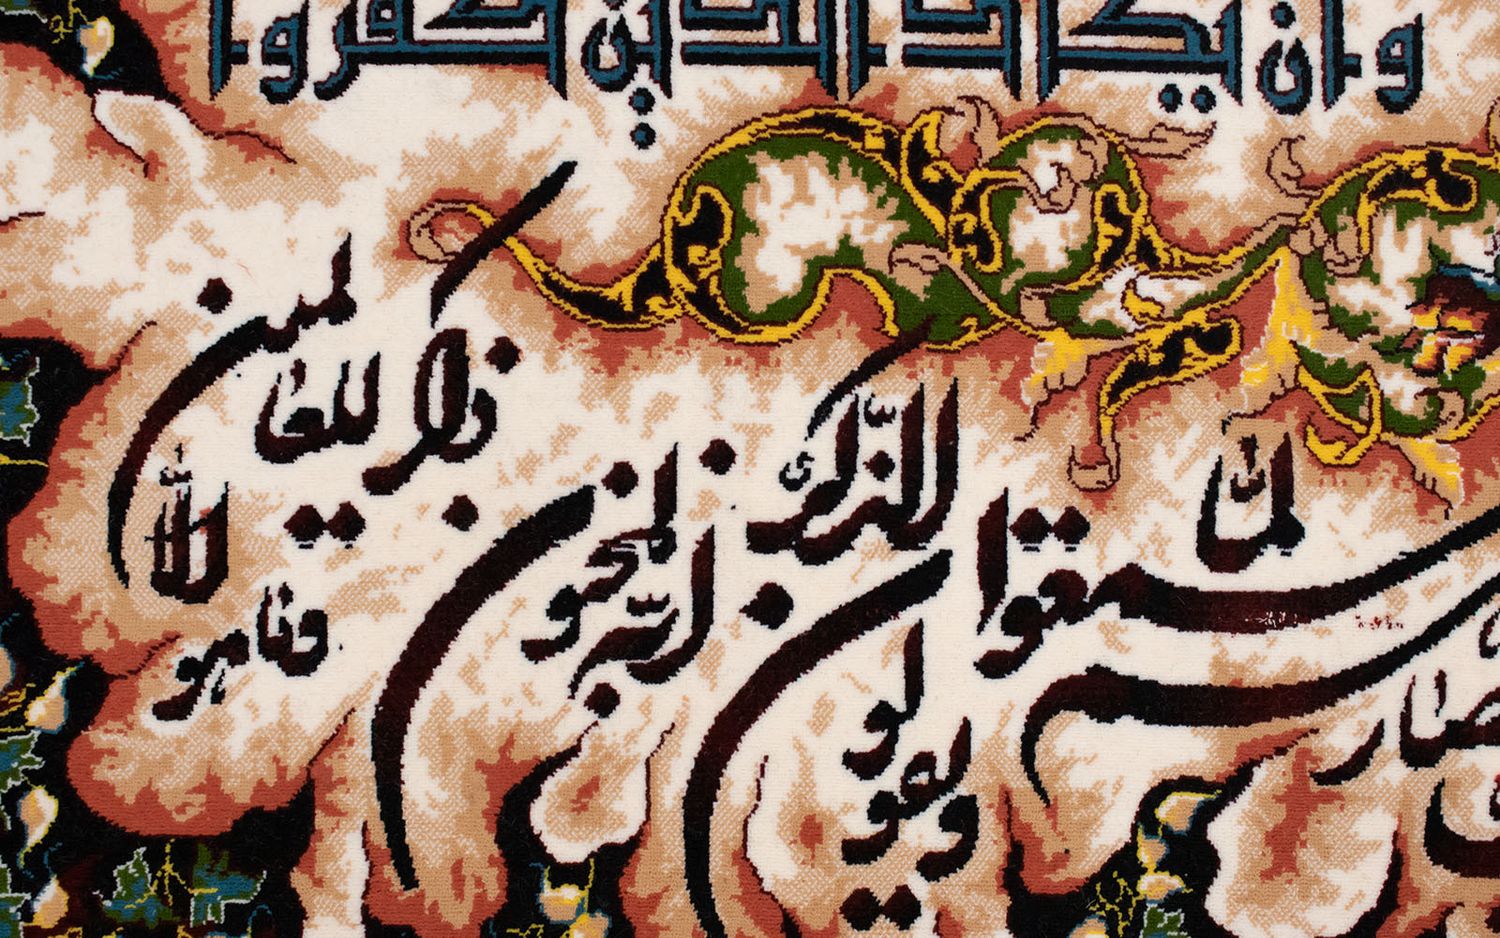 وان يكاد الذين كفروا
لما سمعوا الذكر
ويقولون انه لمجنون
وما هو الا ذكر للعالمين